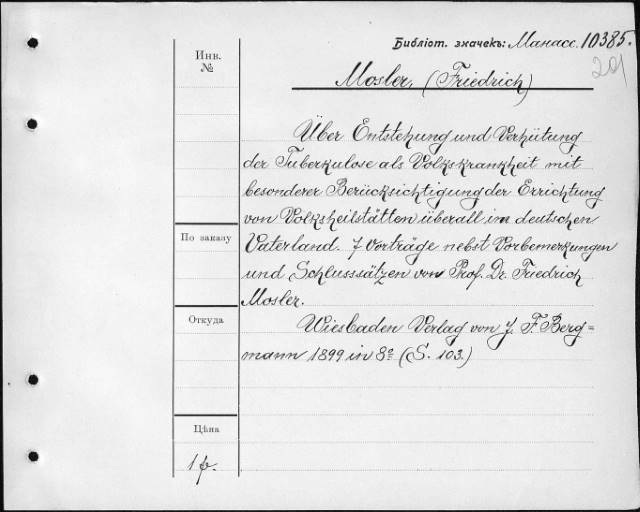 Библіот. значекъ: Манасс. 10385.
201
Инв.
№
Mosler, (Friedrich)
Über Entstehung und Verhütung
der Tuberkulose als Volkskrankheit mit
besonderer Berücksichtigung der Errichtung
von Volksheilstätten überall im deutschen
По заказу
Vaterland. 7 Vorträge nebst Vorbemerkungen
und Schlusssätzen von Prof. Dr. Friedrich
Mosler.
Откуда
Wiesbaden Verlag von J. F. Berg=
mann 1899 in 8º (S. 103.)
Цѣна
1 р.